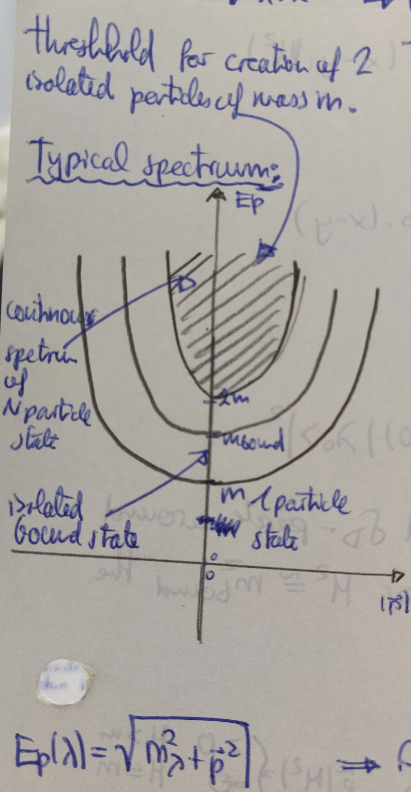 threshhold for creation of 2
isolated particles of mass m.
Typical spectrum:
Ep
continous
spetrum
of
N particle
state
2m
mbound
isolated
bound state
m 1 particle
state
0
0
|p⃗|
Ep(λ) = √m²λ + p⃗² ⟹